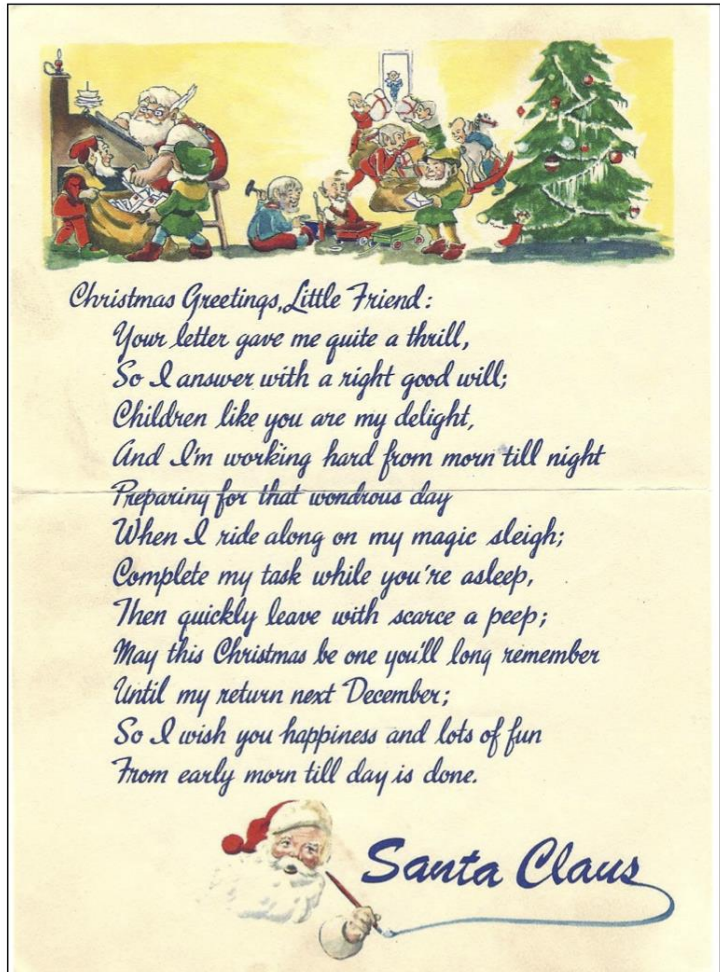 Christmas Greetings, Little Friend:
Your letter gave me quite a thrill,
So I answer with a right good will;
Children like you are my delight,
And I'm working hard from morn till night
Preparing for that wondrous day
When I ride along on my magic sleigh;
Complete my task while you're asleep,
Then quickly leave with scarce a peep;
May this Christmas be one you'll long remember
Until my return next December;
So I wish you happiness and lots of fun
From early morn till day is done.
Santa Claus